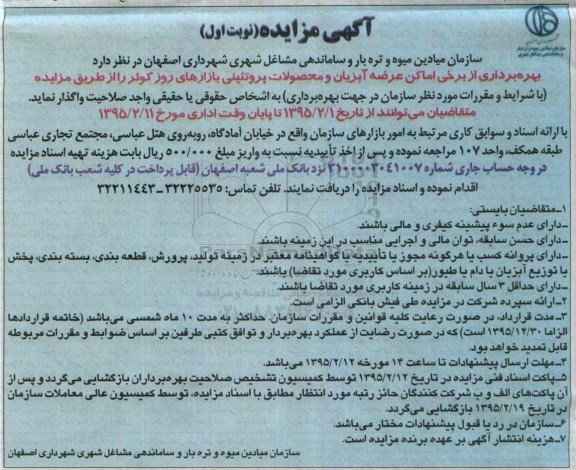 آگهی مزایده (نوبت اول)
سازمان میادین میوه و تره بار و ساماندهی مشاغل شهری شهرداری اصفهان در نظر دارد
بهره‌برداری از برخی اماکن عرضه آبزیان و محصولات پروتئینی بازارهای روز کوثر را از طریق مزایده
(با شرایط و مقررات مورد نظر سازمان در جهت بهره‌برداری) به اشخاص حقوقی یا حقیقی واجد صلاحیت واگذار نماید.
متقاضیان می‌توانند از تاریخ ۱۳۹۵/۲/۱ تا پایان وقت اداری مورخ ۱۳۹۵/۲/۱۱
با ارائه اسناد و سوابق کاری مرتبط به امور بازارهای سازمان واقع در خیابان آمادگاه، روبه‌روی هتل عباسی، مجتمع تجاری عباسی
طبقه همکف، واحد ۱۰۷ مراجعه نموده و پس از اخذ تأییدیه نسبت به واریز مبلغ ۵۰۰/۰۰۰ ریال بابت هزینه تهیه اسناد مزایده
در وجه حساب جاری شماره ۳۱۰۰۰۰۳۰۴۱۰۰۷ نزد بانک ملی شعبه اصفهان (قابل پرداخت در کلیه شعب بانک ملی)
اقدام نموده و اسناد مزایده را دریافت نمایند. تلفن تماس: ۳۲۲۲۵۵۳۵ – ۳۲۲۱۱۴۴۳
۱–متقاضیان بایستی:
–دارای عدم سوء پیشینه کیفری و مالی باشند.
–دارای حسن سابقه، توان مالی و اجرایی مناسب در این زمینه باشند.
–دارای پروانه کسب یا هرگونه مجوز یا تأییدیه یا گواهینامه معتبر در زمینه تولید، پرورش، قطعه بندی، بسته بندی، پخش
یا توزیع آبزیان یا دام یا طیور (بر اساس کاربری مورد تقاضا) باشند.
–دارای حداقل ۳ سال سابقه در زمینه کاربری مورد تقاضا باشند.
۲–ارائه سپرده شرکت در مزایده طی فیش بانکی الزامی است.
۳–مدت قرارداد، در صورت رعایت کلیه قوانین و مقررات سازمان، حداکثر به مدت ۱۰ ماه شمسی می‌باشد (خاتمه قراردادها
الزاما ۱۳۹۵/۱۲/۳۰ است) که در صورت رضایت از عملکرد بهره‌بردار و توافق کتبی طرفین بر اساس ضوابط و مقررات مربوطه
قابل تمدید خواهد بود.
۴–مهلت ارسال پیشنهادات تا ساعت ۱۴ مورخه ۱۳۹۵/۲/۱۲ می‌باشد.
۵–پاکت اسناد فنی مزایده در تاریخ ۱۳۹۵/۲/۱۲ توسط کمیسیون تشخیص صلاحیت بهره‌برداران بازگشایی می‌گردد و پس از
آن پاکت‌های الف و ب شرکت کنندگان حائز رتبه مورد انتظار مطابق با اسناد مزایده، توسط کمیسیون عالی معاملات سازمان
در تاریخ ۱۳۹۵/۲/۱۹ بازگشایی می‌گردد.
۶–سازمان در رد یا قبول پیشنهادات مختار می‌باشد.
۷–هزینه انتشار آگهی بر عهده برنده مزایده است.
سازمان میادین میوه و تره بار و ساماندهی مشاغل شهری شهرداری اصفهان